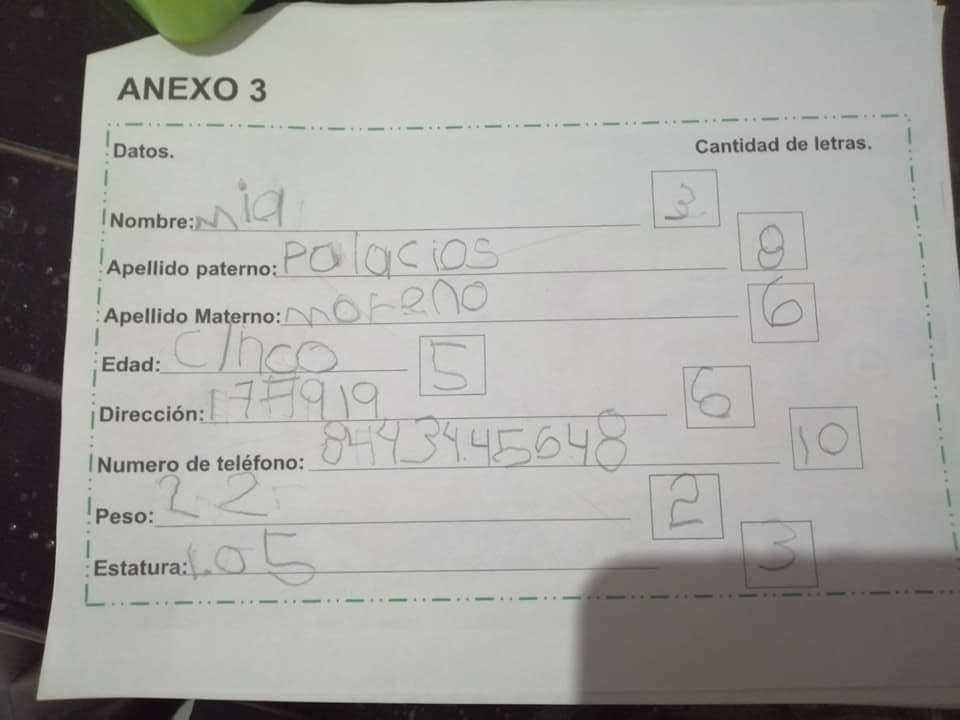 ANEXO 3
Datos. Cantidad de letras.
Nombre: mia 3
Apellido paterno: palacios 8
Apellido Materno: moreno 6
Edad: cinco 5
Dirección: 6
Numero de teléfono: 10
Peso: 22 2
Estatura: 1.05 3